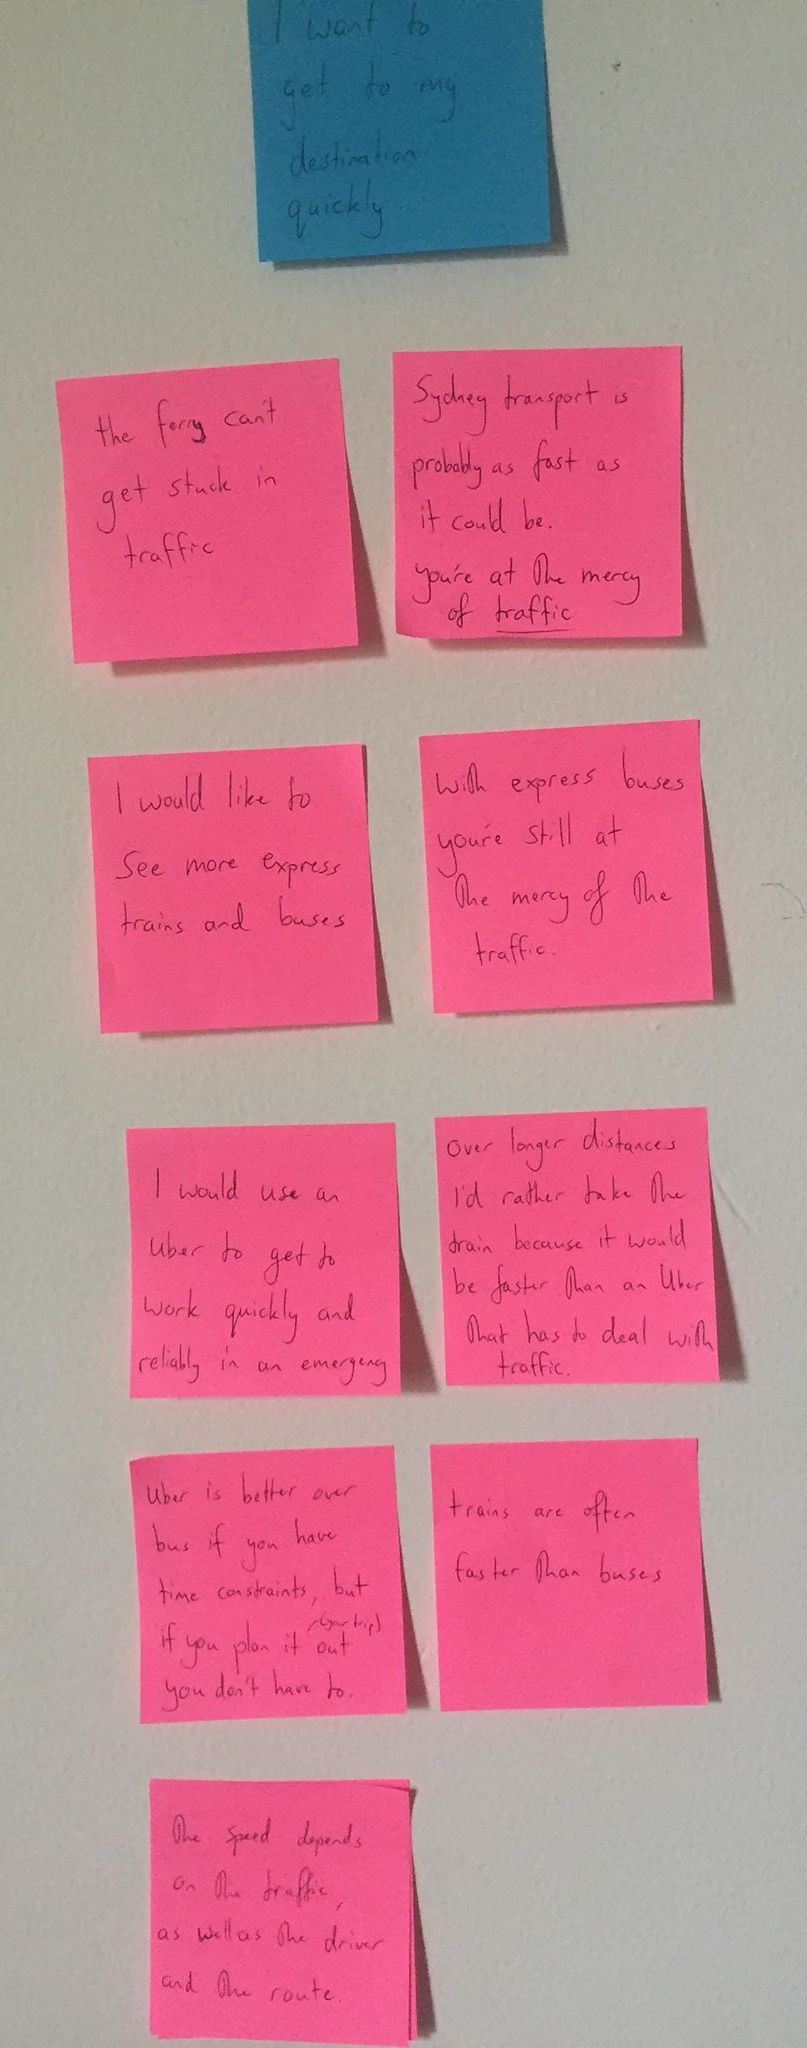 I want to
get to my
destination
quickly
the ferry can't
get stuck in
traffic
Sydney transport is
probably as fast as
it could be.
you're at the mercy
of traffic
I would like to
see more express
trains and buses
With express buses
you're still at
the mercy of the
traffic.
I would use an
Uber to get to
work quickly and
reliably in an emergency
Over longer distances
I'd rather take the
train because it would
be faster than an Uber
that has to deal with
traffic.
Uber is better over
bus if you have
time constraints, but
(your trip)
if you plan it out
you don't have to.
trains are often
faster than buses
The speed depends
on the traffic,
as well as the driver
and the route.